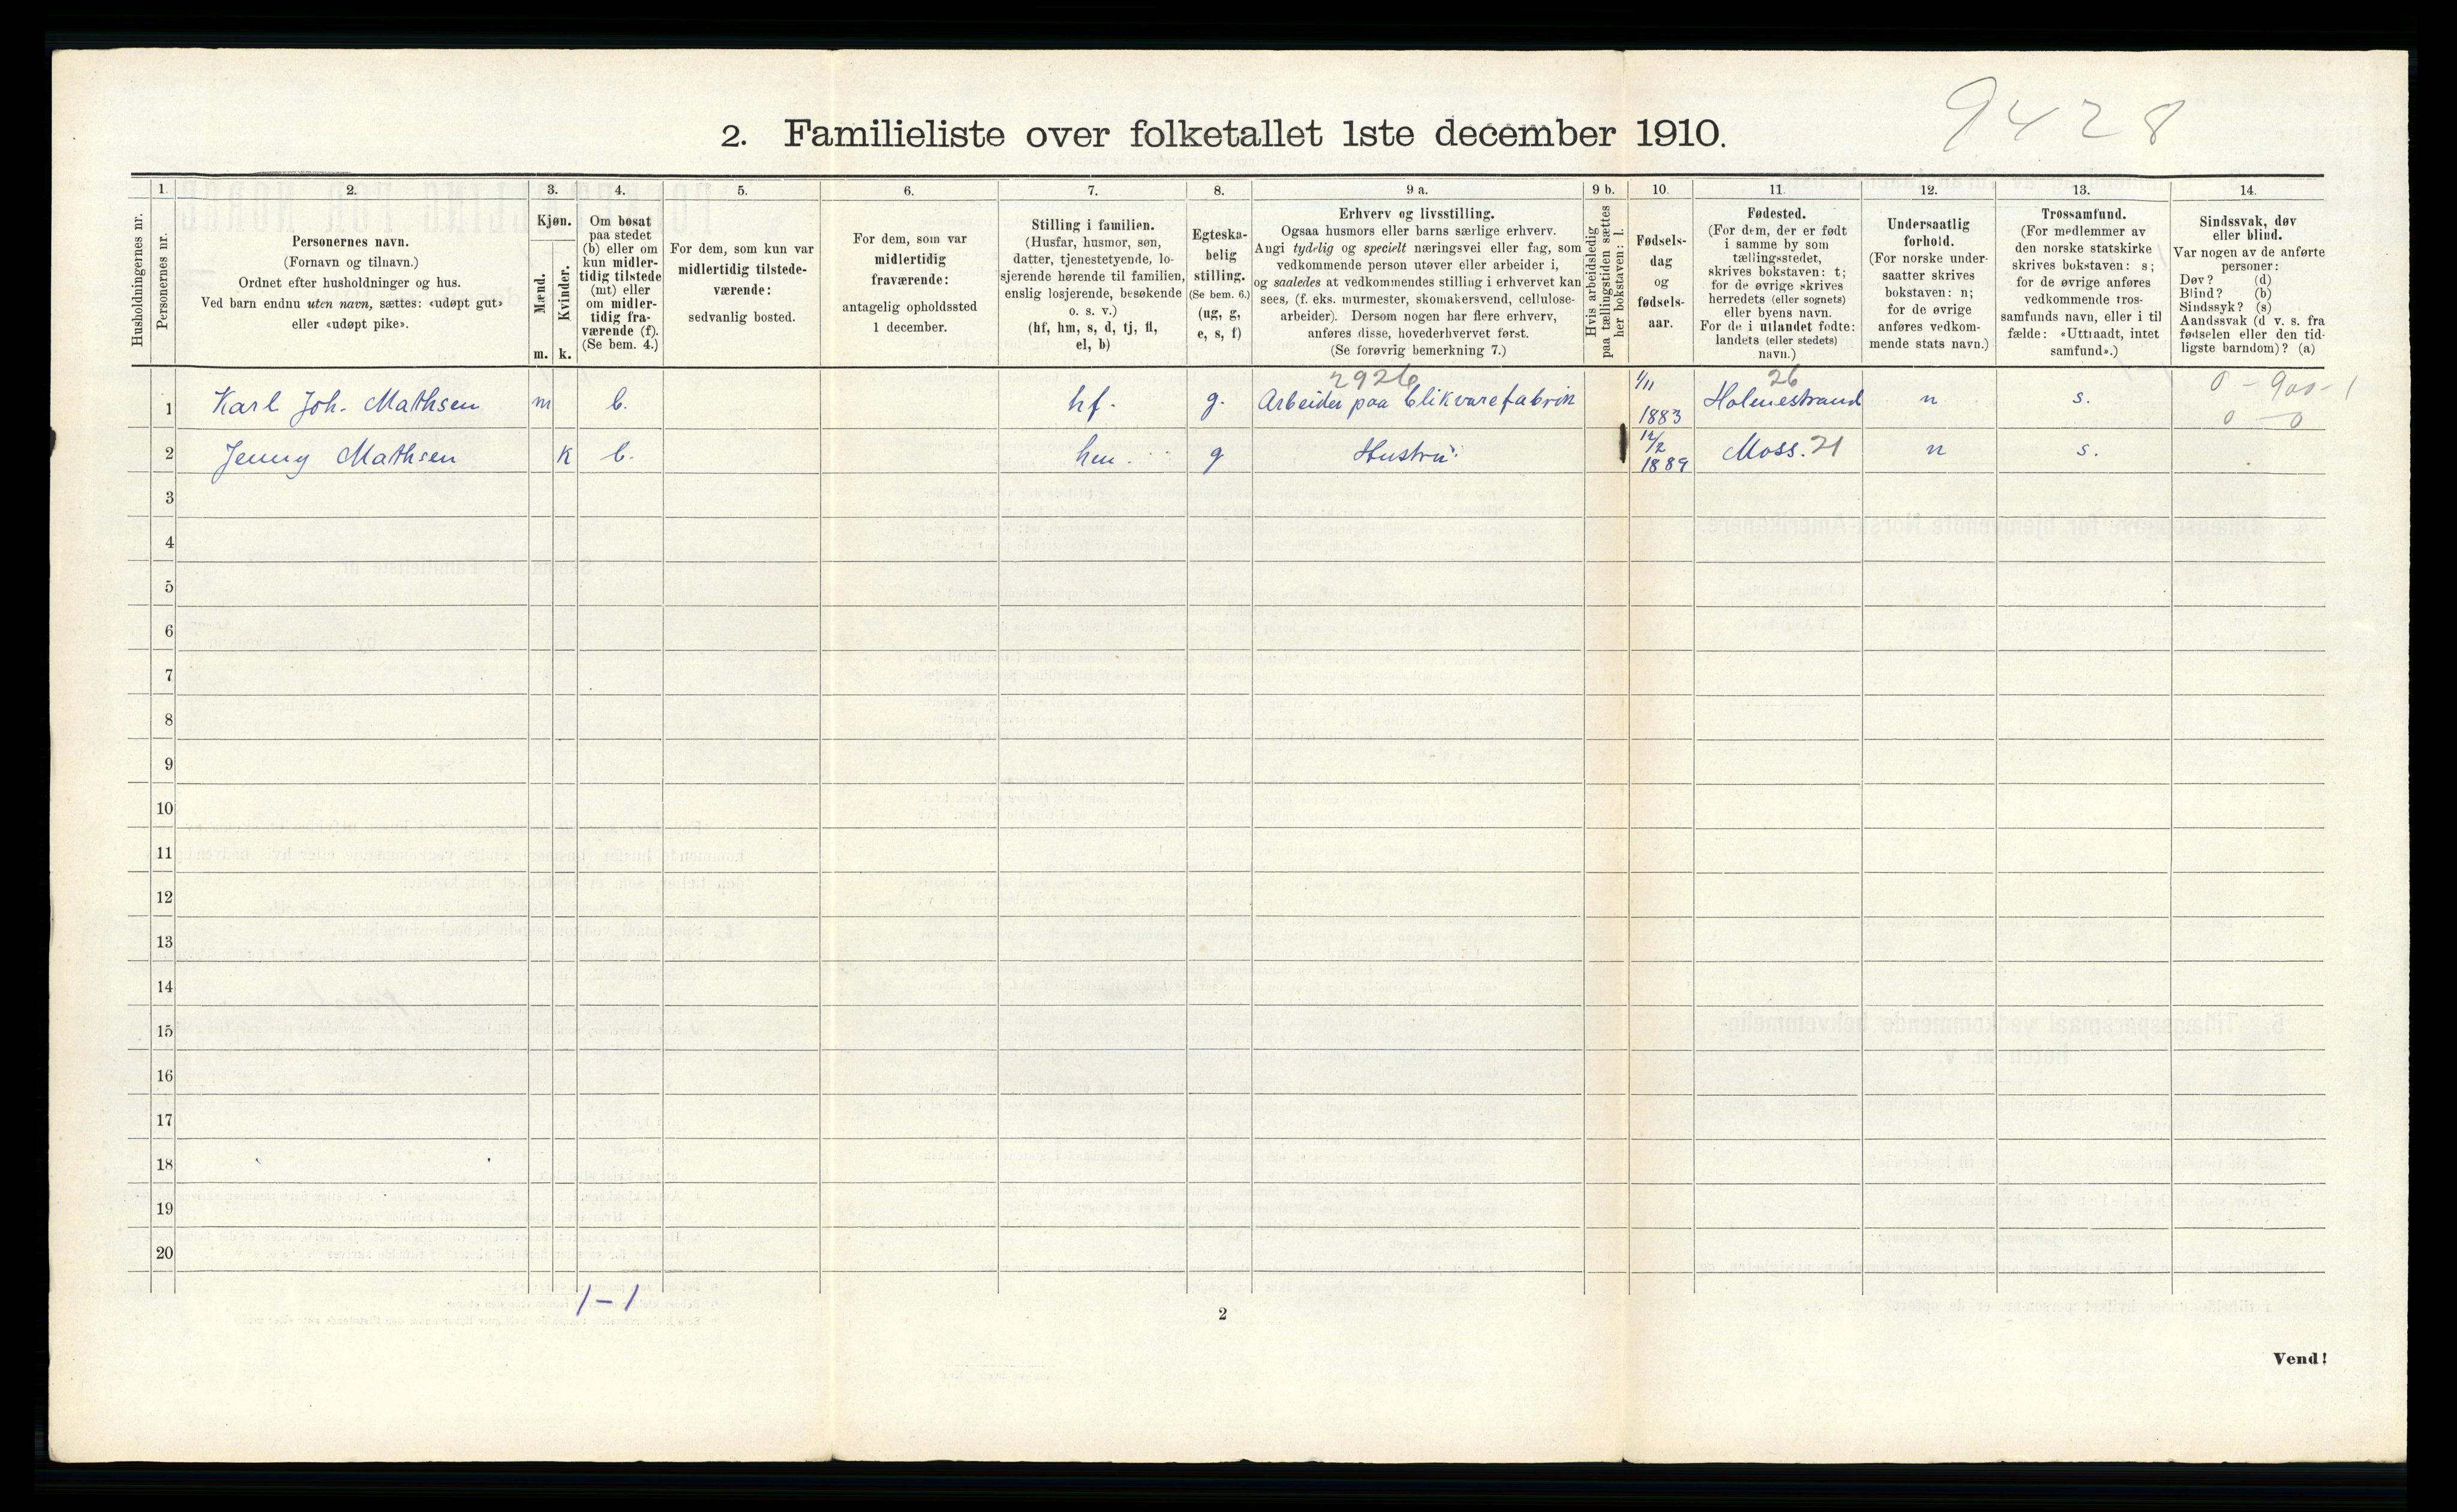 9428
2. Familieliste over folketallet 1ste december 1910.
1. 2. 3. 4. 5. 6. 7. 8. 9 a. 9 b. 10. 11. 12. 13. 14.
Husholdningernes nr.
Personernes nr.
Personernes navn.
(Fornavn og tilnavn.)
Ordnet efter husholdninger og hus.
Ved barn endnu uten navn, sættes: «udøpt gut»
eller «udøpt pike».
Kjøn.
Mænd.
Kvinder.
m. k.
Om bosat
paa stedet
(b) eller om
kun midler-
tidig tilstede
(mt) eller
om midler-
tidig fra-
værende (f).
(Se bem. 4.)
For dem, som kun var
midlertidig tilstede-
værende:
sedvanlig bosted.
For dem, som var
midlertidig
fraværende:
antagelig opholdssted
1 december.
Stilling i familien.
(Husfar, husmor, søn,
datter, tjenestetyende, lo-
sjerende hørende til familien,
enslig losjerende, besøkende
o. s. v.)
(hf, hm, s, d, tj, fl,
el, b)
Egteska-
belig
stilling.
(Se bem. 6.)
(ug, g,
e, s, f)
Erhverv og livsstilling.
Ogsaa husmors eller barns særlige erhverv.
Angi tydelig og specielt næringsvei eller fag, som
vedkommende person utøver eller arbeider i,
og saaledes at vedkommendes stilling i erhvervet kan
sees, (f. eks. murmester, skomakersvend, cellulose-
arbeider). Dersom nogen har flere erhverv,
anføres disse, hovederhvervet først.
(Se forøvrig bemerkning 7.)
Hvis arbeidsledig
paa tællingstiden sættes
her bokstaven: l.
Fødsels-
dag
og
fødsels-
aar.
Fødested.
(For dem, der er født
i samme by som
tællingsstedet,
skrives bokstaven: t;
for de øvrige skrives
herredets (eller sognets)
eller byens navn.
For de i utlandet fødte:
landets (eller stedets)
navn.)
Undersaatlig
forhold.
(For norske under-
saatter skrives
bokstaven: n;
for de øvrige
anføres vedkom-
mende stats navn.)
Trossamfund.
(For medlemmer av
den norske statskirke
skrives bokstaven: s;
for de øvrige anføres
vedkommende tros-
samfunds navn, eller i til
fælde: «Uttraadt, intet
samfund».)
Sindssvak, døv
eller blind.
Var nogen av de anførte
personer:
Døv? (d)
Blind? (b)
Sindssyk? (s)
Aandssvak (d v. s. fra
fødselen eller den tid-
ligste barndom)? (a)
2926 26 0 - 900 - 1
1 Karl Joh. Mathsen m b. hf. g. Arbeider paa blikvarefabrik 1/11 1883 Holmestrand n s.
0 - 0
2 Jenny Mathsen k b. hm. g Hustru 12/2 1889 Moss. 21 n s.
3
4
5
6
7
8
9
10
11
12
13
14
15
16
17
18
19
20
1-1
2
Vend!